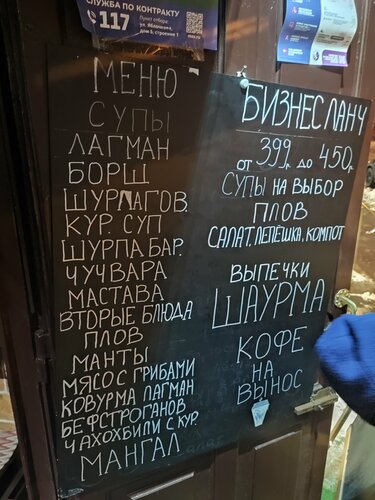 СЛУЖБА ПО КОНТРАКТУ
117
Пункт отбора
ул. Яблочкова,
дом 5, строение 1
МЕНЮ
СУПЫ
ЛАГМАН
БОРЩ
ШУРПАГОВ.
КУР. СУП
ШУРПА БАР.
ЧУЧВАРА
МАСТАВА
ВТОРЫЕ БЛЮДА
ПЛОВ
МАНТЫ
МЯСО С ГРИБАМИ
КОВУРМА ЛАГМАН
БЕФСТРОГАНОВ
ЧАХОХБИЛИ С КУР.
МАНГАЛ
БИЗНЕС ЛАНЧ
ОТ 399р. ДО 450р.
СУПЫ НА ВЫБОР
ПЛОВ
САЛАТ, ЛЕПЁШКА, КОМПОТ
ВЫПЕЧКИ
ШАУРМА
КОФЕ
НА
ВЫНОС